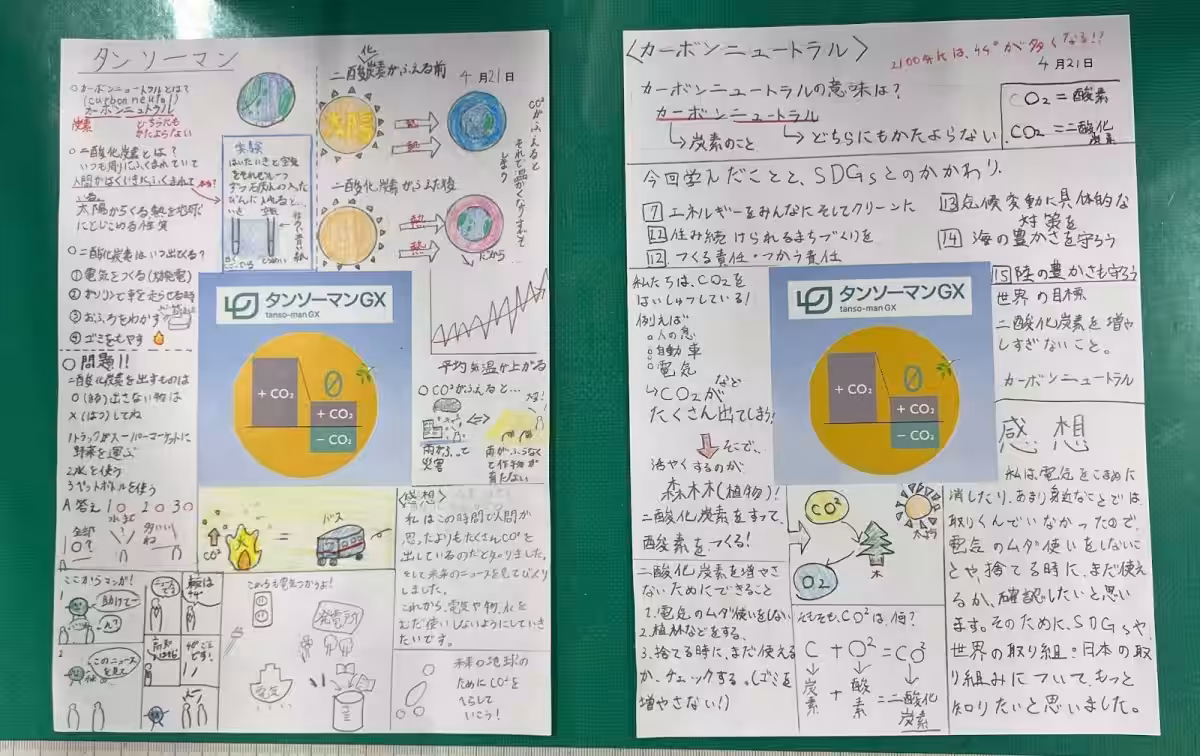 タンソーマン
○カーボンニュートラルとは?
(carbon neutral)
カーボンニュートラル
炭素
どちらにも
かたよらない
○二酸化炭素とは?
いつも周りにふくまれていて
人間がはくいきにふくまれて
いる。
太陽からくる熱を地球
にとじこめる性質
○二酸化炭素はいつ出てくる?
①電気をつくる(火力発電)
②ガソリンで車を走らせる時
③おふろをわかす
④ゴミをもやす
○問題!!
二酸化炭素を出すものは
○(まる)出さない物は
×(ばつ)してね
1.トラックがスーパーマーケットに
野菜を運ぶ
2.水を使う
3.ペットボトルを使う
A 答え 1○ 2○ 3○
全部
○?
水まで
実験
はいたいきと空気
いき
空気
二酸化炭素がふえる前
4月21日
太陽
熱
熱
二酸化炭素がふえた後
熱
熱
CO²がふえると
それで温かくなりすぎて
しまう
だから
平均気温が上がる
○CO²がふえると…
雨がふって
災害
雨がふらなく
て作物が
育たない
タンソーマンGX
tanso-man GX
+ CO₂
0
+ CO₂
− CO₂
CO²
=
バス
〈感想〉
私はこの時間で人間が
思ったよりもたくさんCO²を
出しているのだと知りました。
そして未来のニュースを見てびっくり
しました。
これから、電気や物、水を
むだ使いしないようにしていき
たいです。
未来の地球の
ためにCO²を
へらして
いこう!
ここからマンガ!
1
助けてー
2
このニュースを見て
これらも電気つかうよ!
発電所
電気
〈カーボンニュートラル〉
2100年には、44°が多くなる!!
4月21日
カーボンニュートラルの意味は?
カーボンニュートラル
→炭素のこと
→どちらにもかたよらない
CO₂=酸素
CO₂=二酸化
炭素
今回学んだことと、SDGsとのかかわり.
7 エネルギーをみんなにそしてクリーンに
11 住み続けられるまちづくりを
12 つくる責任・つかう責任
13 気候変動に具体的な
対策を
14 海の豊かさを守ろう
15 陸の豊かさも守ろう
私たちは、CO₂を
はいしゅつしている!
例えば
○人の息
○自動車
○電気
など
↳CO₂が
たくさん出てしまう!
そこで、
活やくするのが、
森林木(植物)!
二酸化炭素をすって、
酸素をつくる!
タンソーマンGX
tanso-man GX
+ CO₂
0
+ CO₂
− CO₂
世界の目標
二酸化炭素を増や
しすぎないこと。
カーボンニュートラル
CO²
O2
木
太よう
二酸化炭素を増やさ
ないためにできること
1.電気のムダ使いをしない
2.植林などをする。
3.捨てる時に、まだ使える
か、チェックする。(ゴミを
増やさない!)
そもそも、CO²は、何?
C + O² = CO²
炭素 + 酸素 = 二酸化
炭素
感想
私は、電気をこまめに
消したり、あまり身近なことでは
取りくんでいなかったので、
電気のムダ使いをしないこ
とや、捨てる時に、まだ使え
るか、確認したいと思い
ます。そのために、SDGsや、
世界の取り組み・日本の取
り組みについて、もっと
知りたいと思いました。